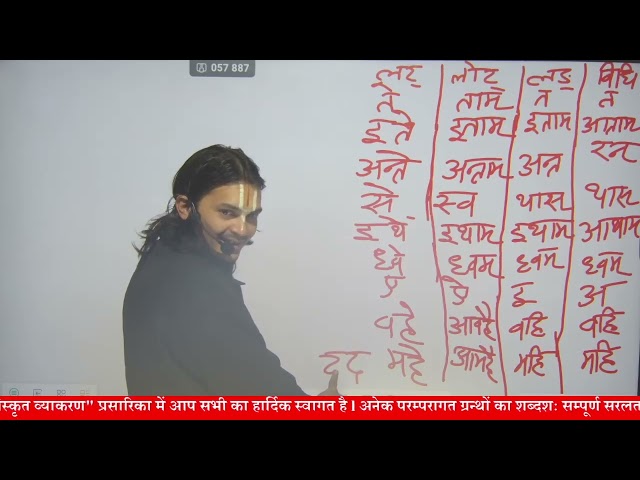 057 887
लृट् लोट् लङ् विधि
ते ताम् त त
इते इताम् इताम् आताम्
रन्
अन्ते अन्ताम् अन्त
से स्व थास् थास्
इथे इथाम् इथाम् आथाम्
ध्वे ध्वम् ध्वम् ध्वम्
ए ऐ इ अ
वहे आवहै वहि वहि
दद् महे आमहै महि महि
स्कृत व्याकरण" प्रसारिका में आप सभी का हार्दिक स्वागत है l अनेक परम्परागत ग्रन्थों का शब्दशः सम्पूर्ण सरलत